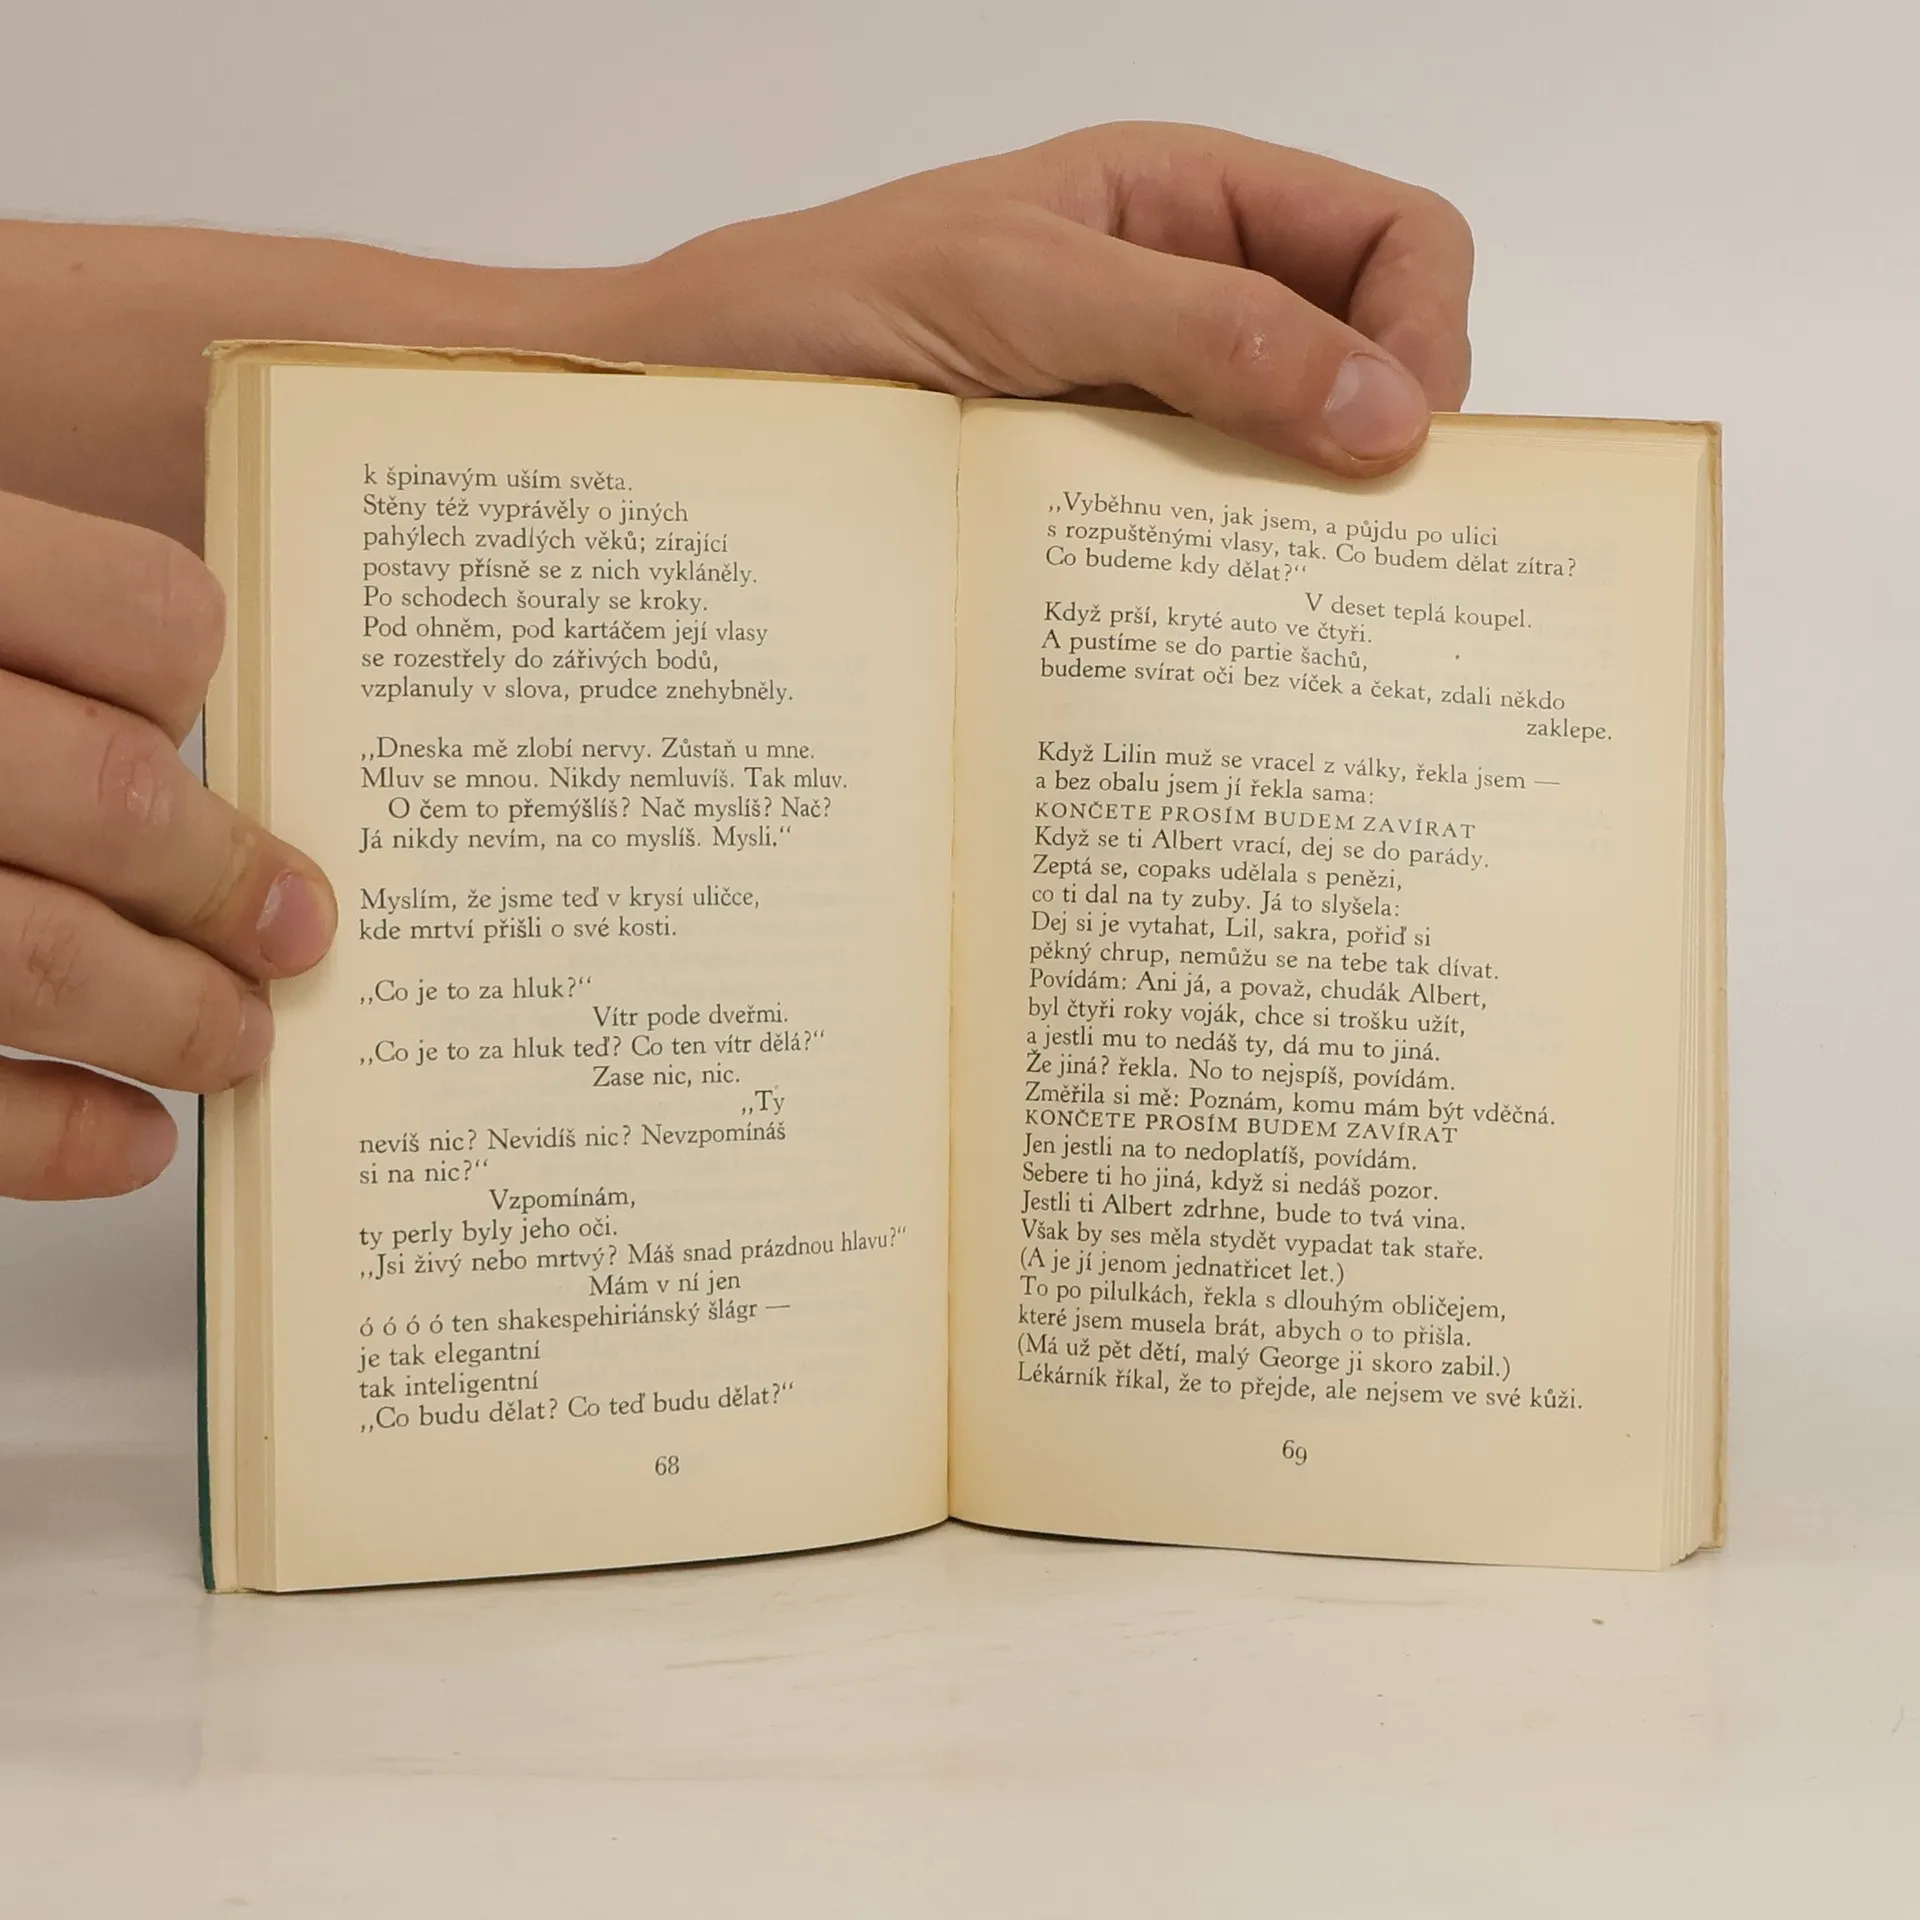 k špinavým uším světa.
Stěny též vyprávěly o jiných
pahýlech zvadlých věků; zírající
postavy přísně se z nich vykláněly.
Po schodech šouraly se kroky.
Pod ohněm, pod kartáčem její vlasy
se rozestřely do zářivých bodů,
vzplanuly v slova, prudce znehybněly.
„Dneska mě zlobí nervy. Zůstaň u mne.
Mluv se mnou. Nikdy nemluvíš. Tak mluv.
O čem to přemýšlíš? Nač myslíš? Nač?
Já nikdy nevím, na co myslíš. Mysli.“
Myslím, že jsme teď v krysí uličce,
kde mrtví přišli o své kosti.
„Co je to za hluk?“
Vítr pode dveřmi.
„Co je to za hluk teď? Co ten vítr dělá?“
Zase nic, nic.
„Ty
nevíš nic? Nevidíš nic? Nevzpomínáš
si na nic?“
Vzpomínám,
ty perly byly jeho oči.
„Jsi živý nebo mrtvý? Máš snad prázdnou hlavu?“
Mám v ní jen
ó ó ó ó ten shakespehiriánský šlágr —
je tak elegantní
tak inteligentní
„Co budu dělat? Co teď budu dělat?“
68
„Vyběhnu ven, jak jsem, a půjdu po ulici
s rozpuštěnými vlasy, tak. Co budem dělat zítra?
Co budeme kdy dělat?“
V deset teplá koupel.
Když prší, kryté auto ve čtyři.
A pustíme se do partie šachů,
budeme svírat oči bez víček a čekat, zdali někdo
zaklepe.
Když Lilin muž se vracel z války, řekla jsem —
a bez obalu jsem jí řekla sama:
KONČETE PROSÍM BUDEM ZAVÍRAT
Když se ti Albert vrací, dej se do parády.
Zeptá se, copaks udělala s penězi,
co ti dal na ty zuby. Já to slyšela:
Dej si je vytahat, Lil, sakra, pořiď si
pěkný chrup, nemůžu se na tebe tak dívat.
Povídám: Ani já, a považ, chudák Albert,
byl čtyři roky voják, chce si trošku užít,
a jestli mu to nedáš ty, dá mu to jiná.
Že jiná? řekla. No to nejspíš, povídám.
Změřila si mě: Poznám, komu mám být vděčná.
KONČETE PROSÍM BUDEM ZAVÍRAT
Jen jestli na to nedoplatíš, povídám.
Sebere ti ho jiná, když si nedáš pozor.
Jestli ti Albert zdrhne, bude to tvá vina.
Však by ses měla stydět vypadat tak staře.
(A je jí jenom jednatřicet let.)
To po pilulkách, řekla s dlouhým obličejem,
které jsem musela brát, abych o to přišla.
(Má už pět dětí, malý George ji skoro zabil.)
Lékárník říkal, že to přejde, ale nejsem ve své kůži.
69